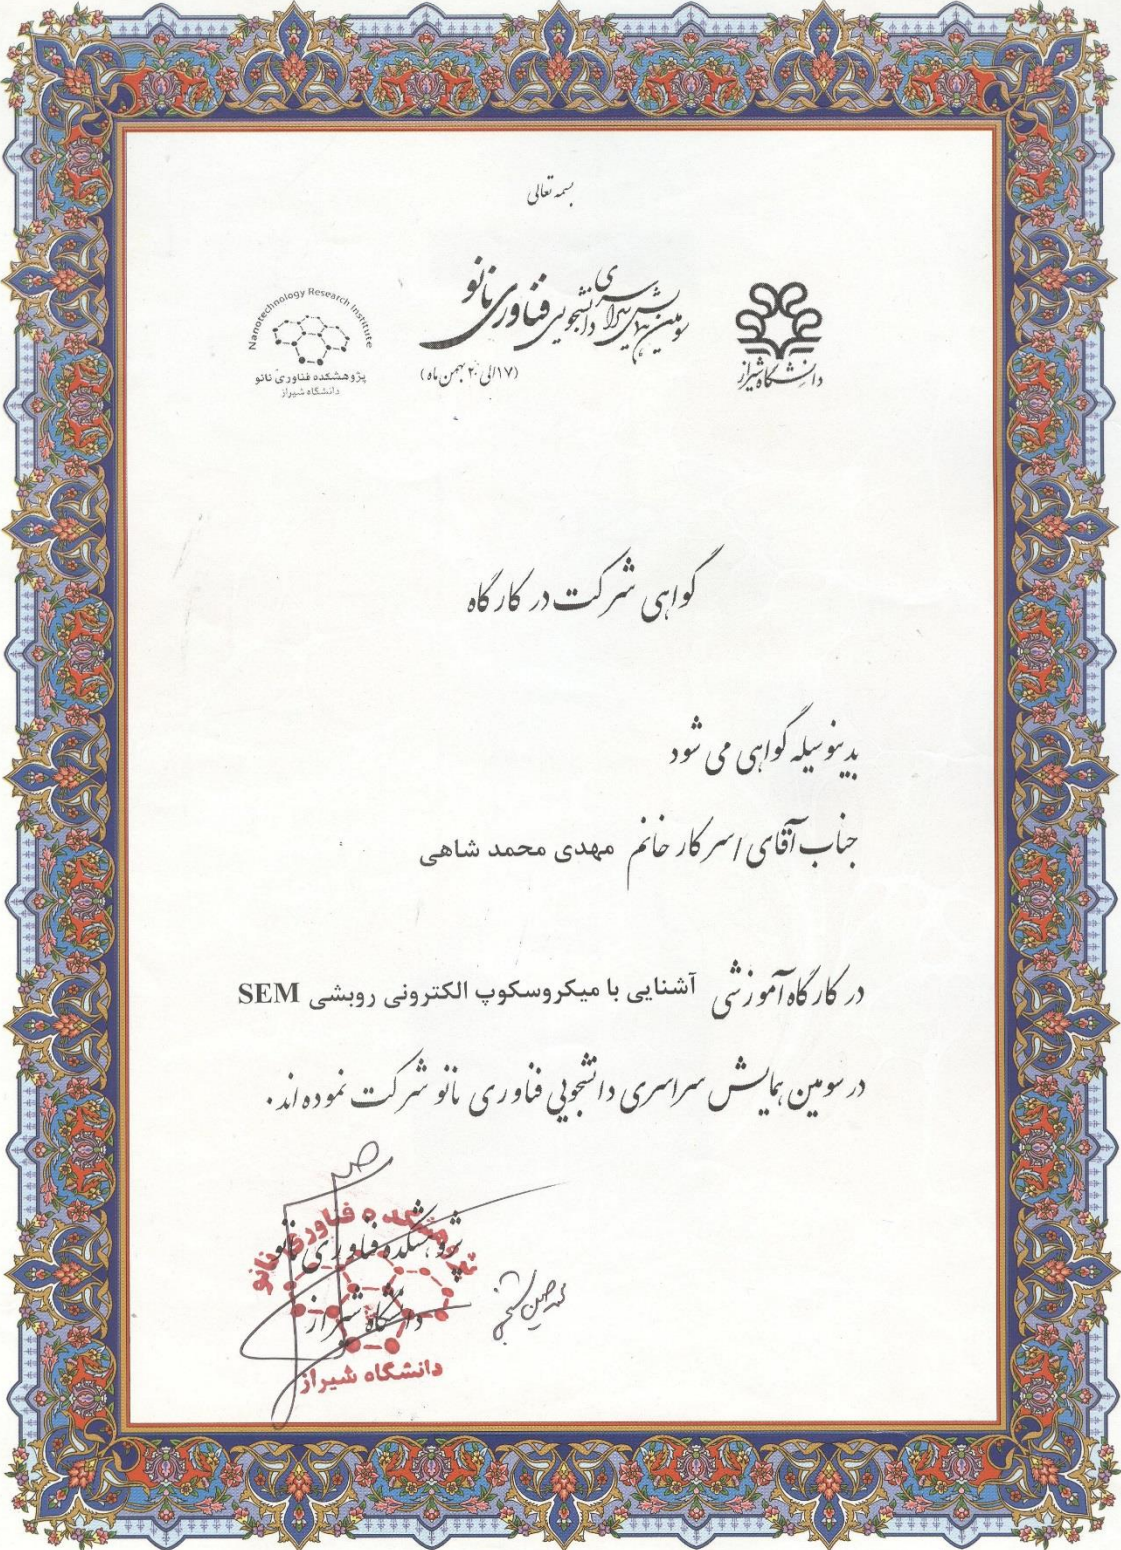 بسمه تعالی
سومین همایش سراسری دانشجویی فناوری نانو
(۱۷ الی ۲۰ بهمن ماه)
دانشگاه شیراز
Nanotechnology Research Institute
پژوهشکده فناوری نانو
دانشگاه شیراز
گواهی شرکت در کارگاه
بدینوسیله گواهی می شود
جناب آقای / سرکار خانم مهدی محمد شاهی
در کارگاه آموزشی آشنایی با میکروسکوپ الکترونی روبشی SEM
در سومین همایش سراسری دانشجویی فناوری نانو شرکت نموده اند.
پژوهشکده فناوری نانو
دانشگاه شیراز
پژوهشکده فناوری نانو
دانشگاه شیراز